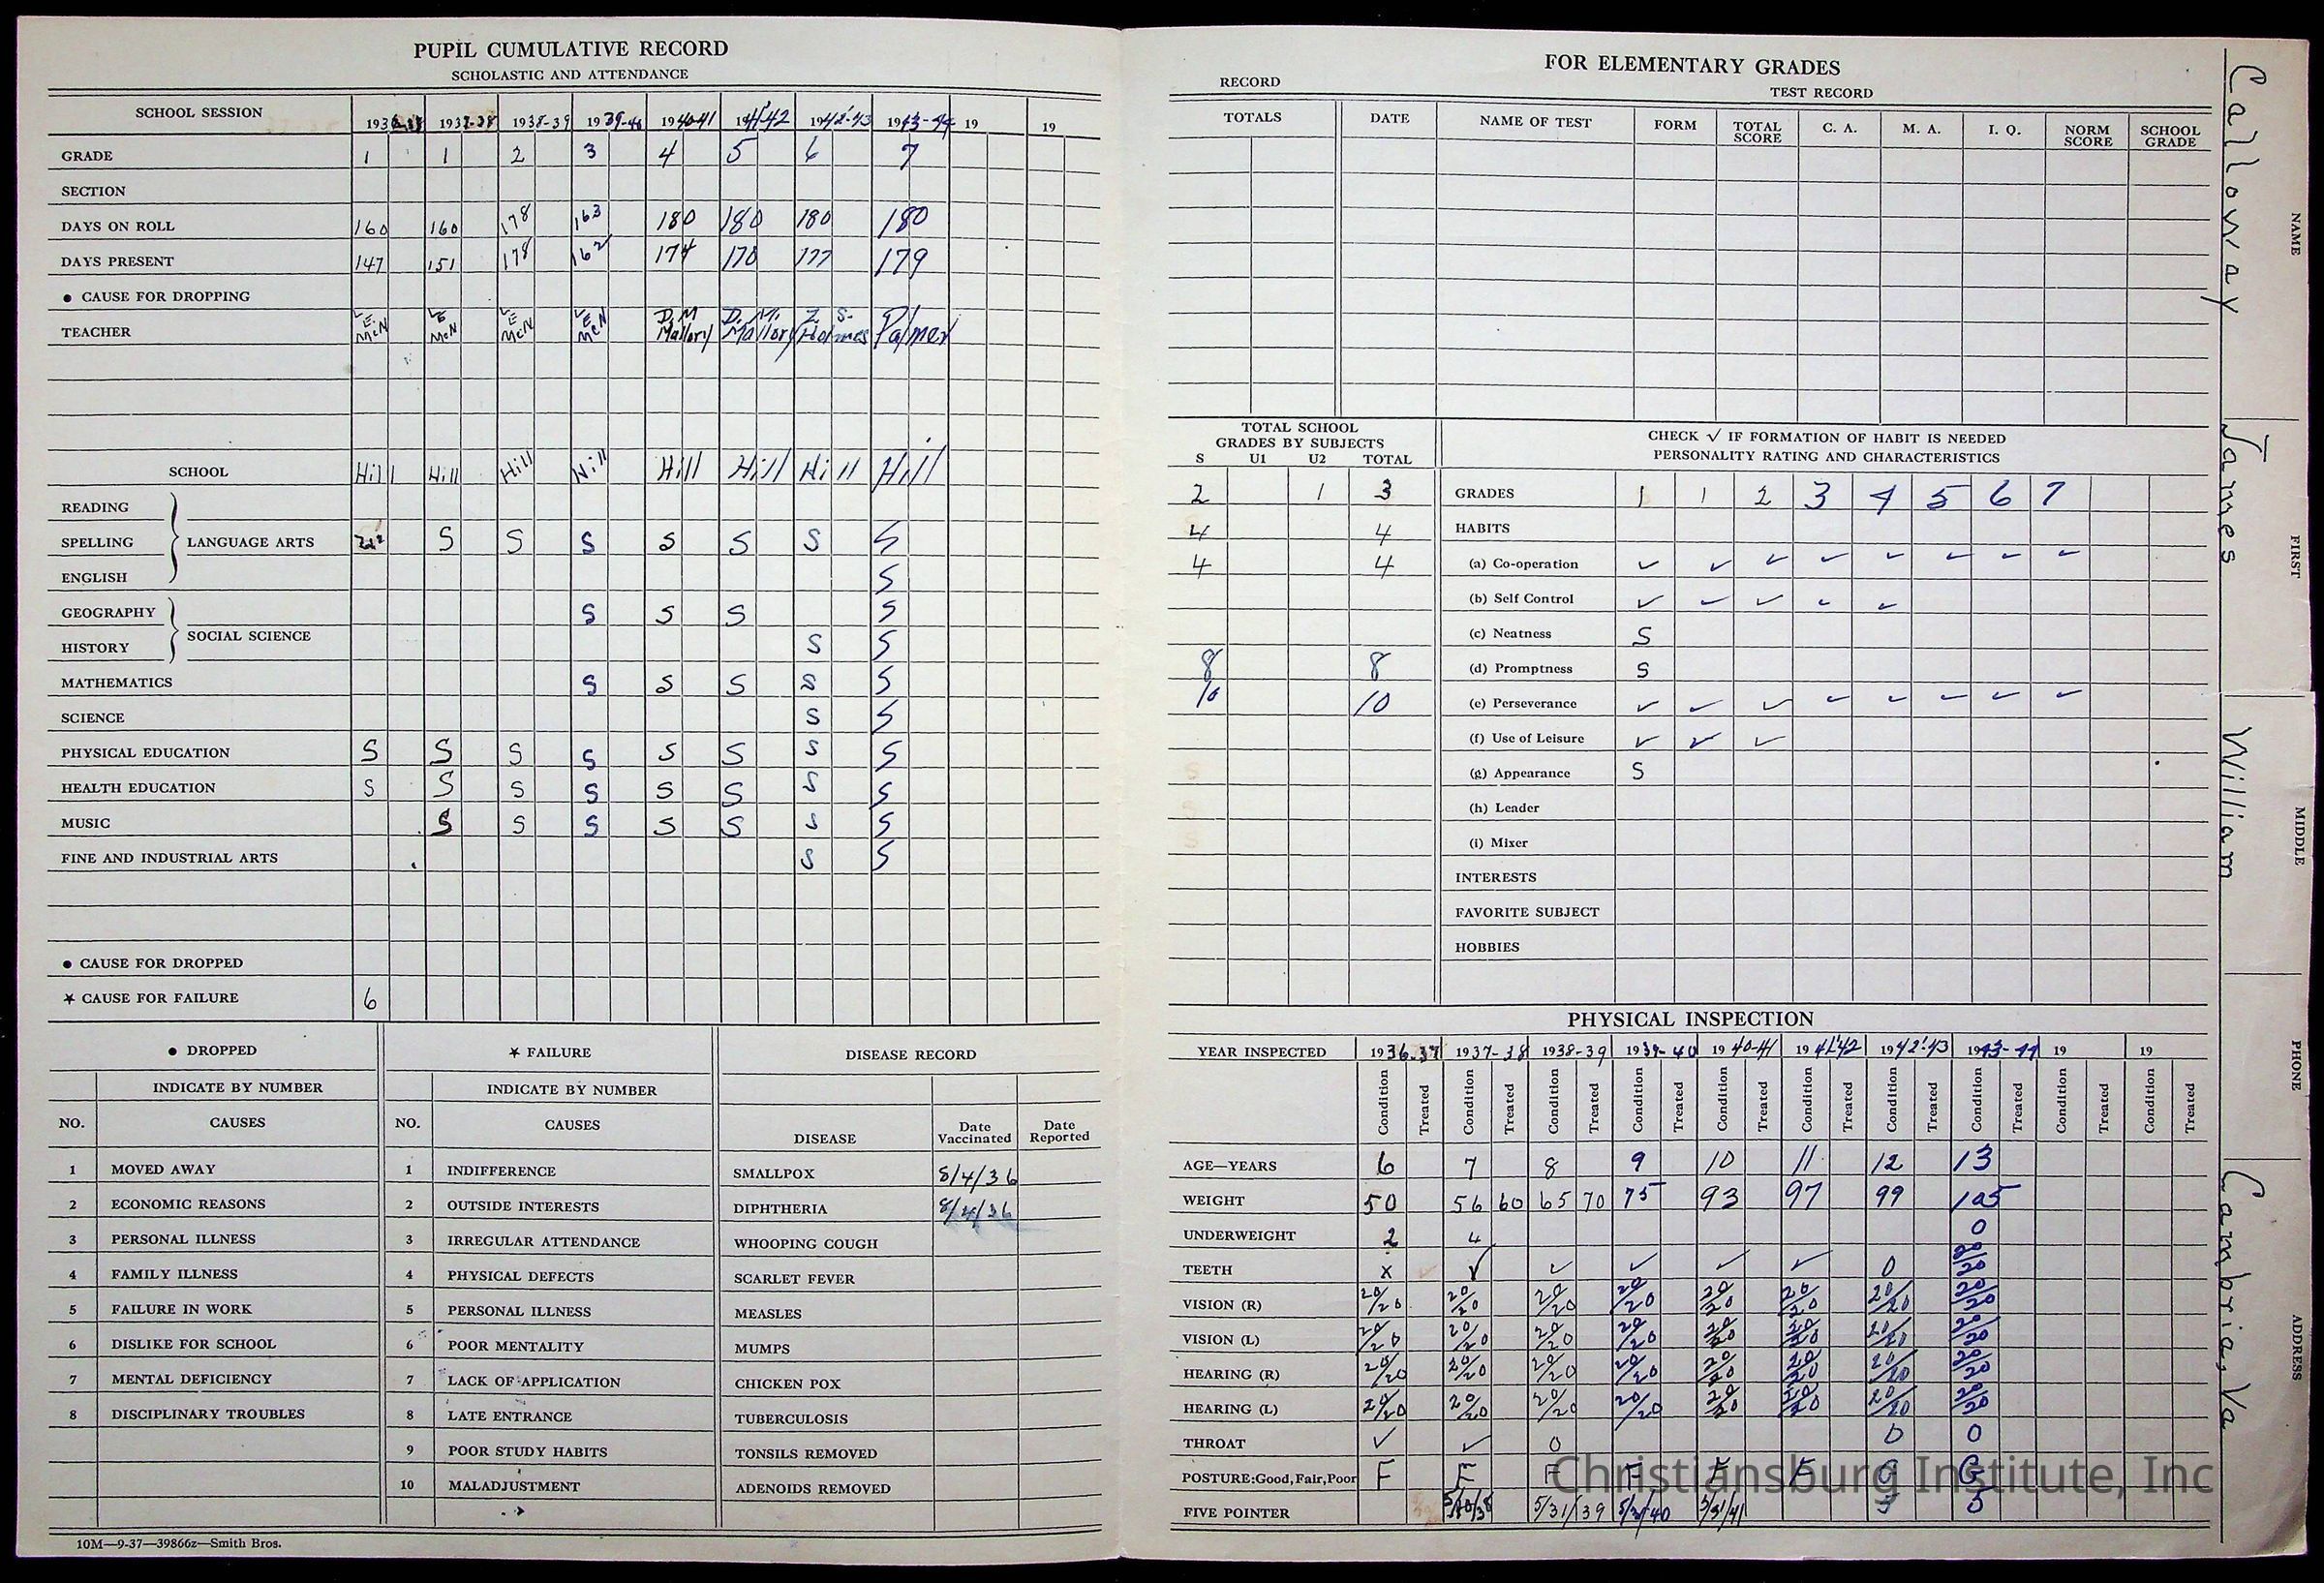 PUPIL CUMULATIVE RECORD
SCHOLASTIC AND ATTENDANCE
SCHOOL SESSION 1936-37 1937-38 1938-39 1939-40 1940-41 1941-42 1942-43 1943-44 19 19
GRADE 1 1 2 3 4 5 6 7
SECTION
DAYS ON ROLL 160 160 178 163 180 180 180 180
DAYS PRESENT 147 151 178 162 174 170 177 179
● CAUSE FOR DROPPING
TEACHER L.E. McN L.E. McN L.E. McN L.E. McN D.M Mallory D.M. Mallory Z. S. Holmes Palmer
SCHOOL Hill Hill Hill Hill Hill Hill Hill Hill
READING
SPELLING LANGUAGE ARTS S S S S S S S
ENGLISH S
GEOGRAPHY S S S S
HISTORY SOCIAL SCIENCE S S
MATHEMATICS S S S S S
SCIENCE S S
PHYSICAL EDUCATION S S S S S S S S
HEALTH EDUCATION S S S S S S S S
MUSIC S S S S S S S
FINE AND INDUSTRIAL ARTS S S
● CAUSE FOR DROPPED
★ CAUSE FOR FAILURE 6
● DROPPED
INDICATE BY NUMBER
NO. CAUSES
1 MOVED AWAY
2 ECONOMIC REASONS
3 PERSONAL ILLNESS
4 FAMILY ILLNESS
5 FAILURE IN WORK
6 DISLIKE FOR SCHOOL
7 MENTAL DEFICIENCY
8 DISCIPLINARY TROUBLES
★ FAILURE
INDICATE BY NUMBER
NO. CAUSES
1 INDIFFERENCE
2 OUTSIDE INTERESTS
3 IRREGULAR ATTENDANCE
4 PHYSICAL DEFECTS
5 PERSONAL ILLNESS
6 POOR MENTALITY
7 LACK OF APPLICATION
8 LATE ENTRANCE
9 POOR STUDY HABITS
10 MALADJUSTMENT
DISEASE RECORD
DISEASE Date Vaccinated Date Reported
SMALLPOX 8/4/36
DIPHTHERIA 8/4/36
WHOOPING COUGH
SCARLET FEVER
MEASLES
MUMPS
CHICKEN POX
TUBERCULOSIS
TONSILS REMOVED
ADENOIDS REMOVED
10M—9-37—39866z—Smith Bros.
FOR ELEMENTARY GRADES
RECORD
TEST RECORD
TOTALS DATE NAME OF TEST FORM TOTAL SCORE C. A. M. A. I. Q. NORM SCORE SCHOOL GRADE
TOTAL SCHOOL
GRADES BY SUBJECTS
S U1 U2 TOTAL
2 1 3
4 4
4 4
8 8
10 10
CHECK √ IF FORMATION OF HABIT IS NEEDED
PERSONALITY RATING AND CHARACTERISTICS
GRADES 1 1 2 3 4 5 6 7
HABITS
(a) Co-operation ✓ ✓ ✓ ✓ ✓ ✓ ✓ ✓
(b) Self Control ✓ ✓ ✓ ✓ ✓
(c) Neatness S
(d) Promptness S
(e) Perseverance ✓ ✓ ✓ ✓ ✓ ✓ ✓ ✓
(f) Use of Leisure ✓ ✓ ✓
(g) Appearance S
(h) Leader
(i) Mixer
INTERESTS
FAVORITE SUBJECT
HOBBIES
PHYSICAL INSPECTION
YEAR INSPECTED 1936-37 1937-38 1938-39 1939-40 1940-41 1941-42 1942-43 1943-44 19 19
Condition Treated Condition Treated Condition Treated Condition Treated Condition Treated Condition Treated Condition Treated Condition Treated Condition Treated Condition Treated
AGE—YEARS 6 7 8 9 10 11 12 13
WEIGHT 50 56 60 65 70 75 93 97 99 105
UNDERWEIGHT 2 4 0
TEETH x ✓ ✓ ✓ ✓ ✓ 0 20/20
VISION (R) 20/20 20/20 20/20 20/20 20/20 20/20 20/20 20/20
VISION (L) 20/20 20/20 20/20 20/20 20/20 20/20 20/20 20/20
HEARING (R) 20/20 20/20 20/20 20/20 20/20 20/20 20/20 20/20
HEARING (L) 20/20 20/20 20/20 20/20 20/20 20/20 20/20 20/20
THROAT ✓ ✓ 0 0 0
POSTURE: Good, Fair, Poor F F F F F F G G
FIVE POINTER 5/31/39 5/31/41 5
NAME Calloway
FIRST James
MIDDLE William
PHONE
ADDRESS Cambria, Va
Christiansburg Institute, Inc